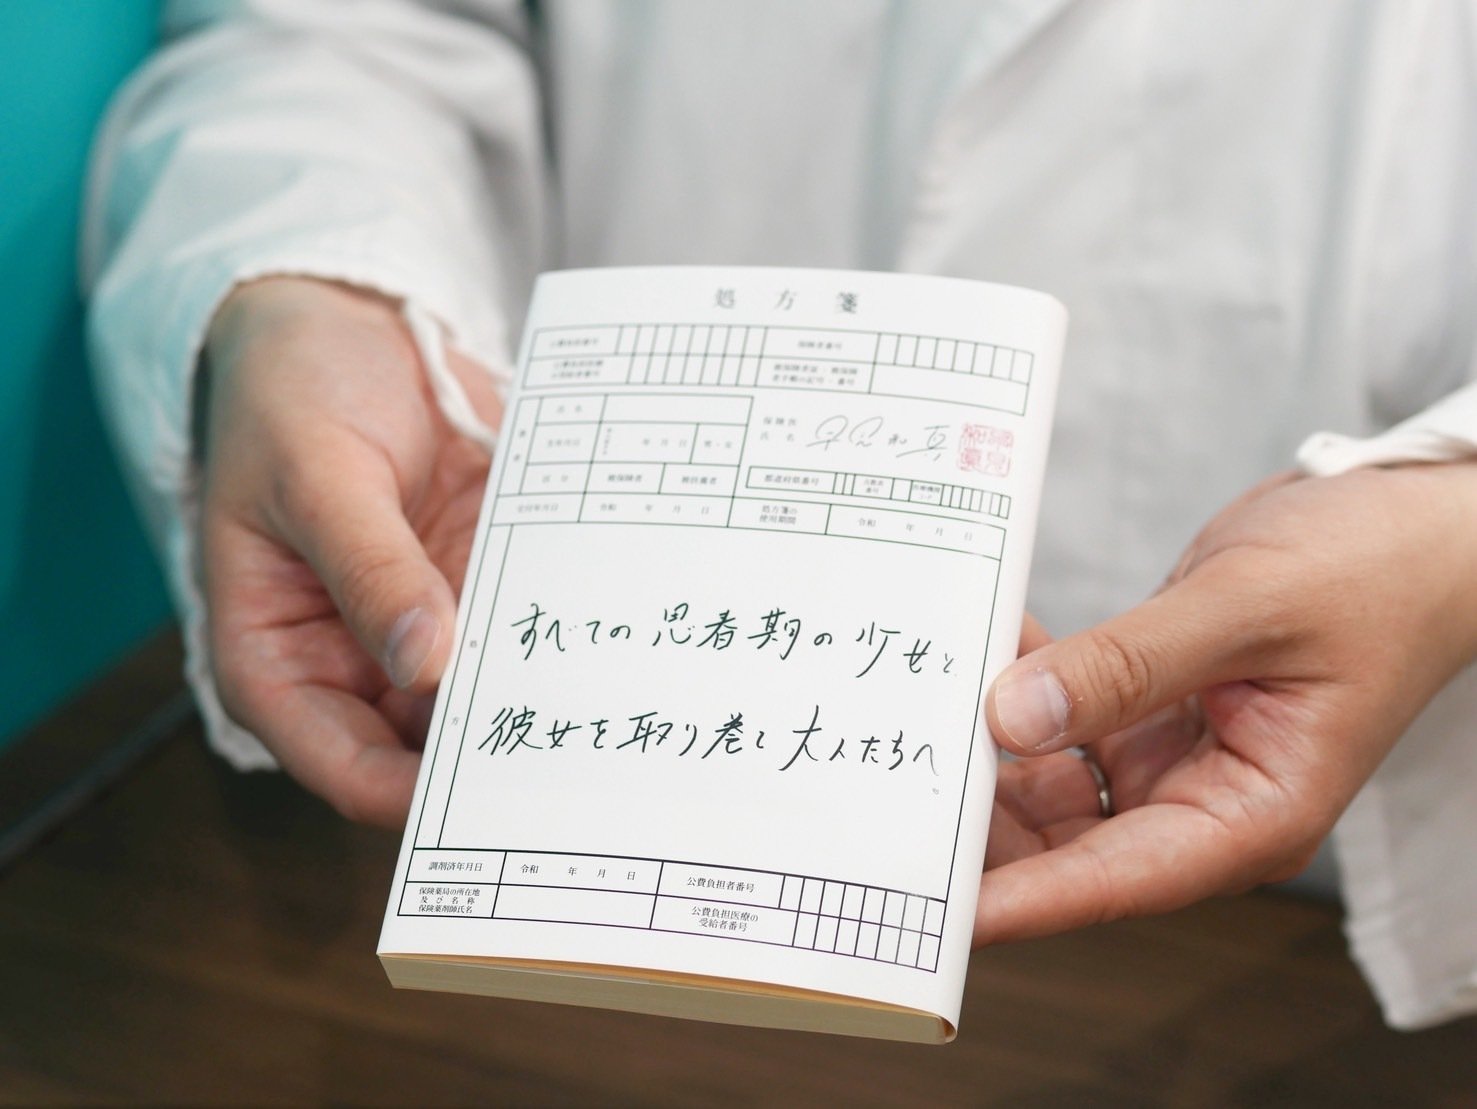 処方箋
公費負担者番号
保険者番号
公費負担医療
の受給者番号
被保険者証・被保険
者手帳の記号・番号
患者
氏名
生年月日
年 月 日
男・女
区分
被保険者
被扶養者
保険医
氏名
都道府県番号
点数表
番号
医療機関
コード
交付年月日
令和 年 月 日
処方箋の
使用期間
令和 年 月 日
処方
すべての思春期の少女と
彼女を取り巻く大人たちへ。
調剤済年月日
令和 年 月 日
公費負担者番号
保険薬局の所在地
及び名称
保険薬剤師氏名
公費負担医療の
受給者番号